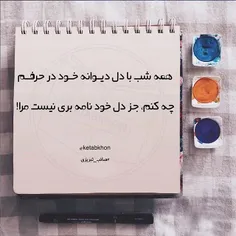 همه شب با دل دیوانه خود در حرفم
چه کنم، جز دل خود نامه بری نیست مرا!
@ketabkhon
#صائب_تبریزی